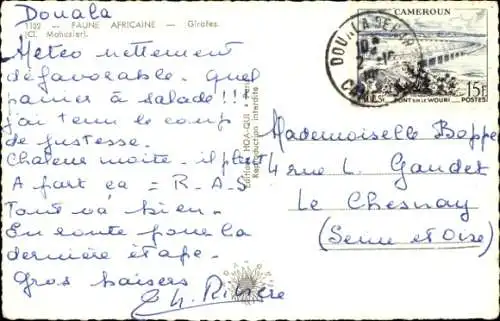 Douala
1122 - FAUNE AFRICAINE - Girafes.
(Cl. Mahosier).
Météo nettement
défavorable. Quel
panier à salade !!
j'ai tenu le coup
de justesse.
Chaleur moite - il pleut
A part ça = R.A.S
Tout va bien.
En route pour la
dernière étape.
Gros baisers
Ch. Rivière
Editions HOA-QUI
Reproduction interdite
CAMEROUN
15F
PONT SUR LE WOURI
POSTES
DOUALA
Mademoiselle Boppe
4 rue L. Gaudet
Le Chesnay
(Seine et Oise)